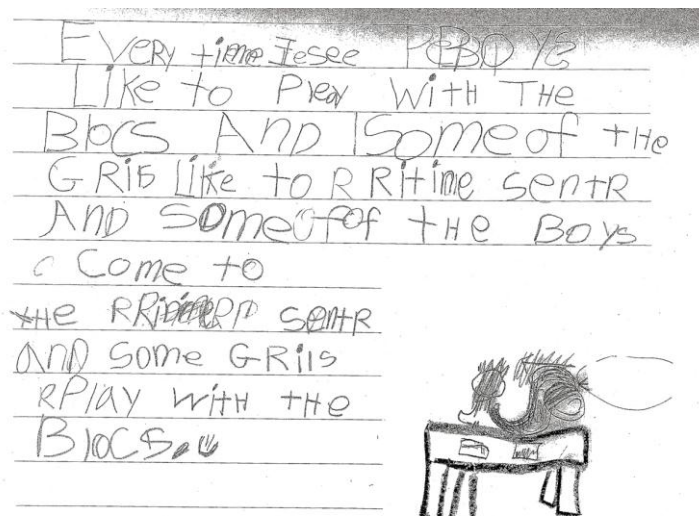 EVERY time I see BOYS
Like to Play WitH THe
BlocS AND Some of tHe
GRils Like to RRitime sentR
AND Some of of tHe Boys
Come to
tHe sentR
AND Some GRils
Play WitH tHe
BlocS.